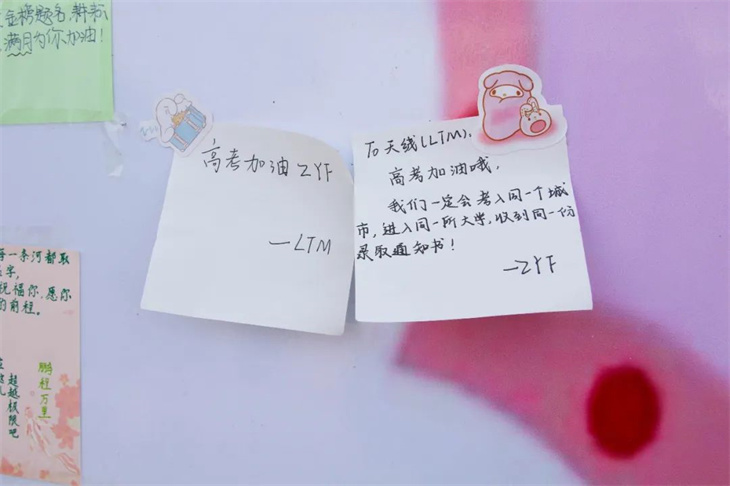 金榜题名,
满月为你加油!
高考加油ZYF
—LTM
To天线(LTM),
高考加油哦,
我们一定会考入同一个城
市,进入同一所大学,收到同一份
录取通知书!
—ZYF
每一条河都取
字,
祝福你,愿你
的前程。
鹏程万里
超越极限吧